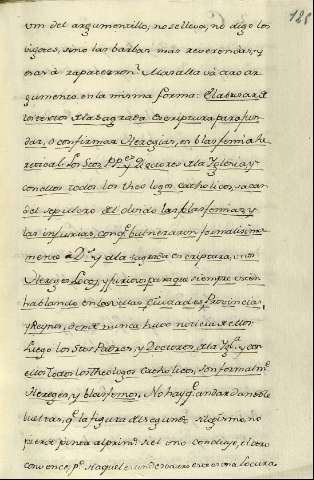 125
um del argumentillo, no se lleva, no digo los
vigotes, sino las barbas mas reverendas, y
esas à Mas alla và otro ar
gumento en la misma forma: El abusar de
los textos de la Sagrada Escriptura para fun
dar, o confirmar Heregias, es blasfemia he
retical: los Stos. PP.es y Doctores de la Iglesia, y
con ellos todos los theologos catholicos, sacan
del sepulcro del olvido las blasfemias, y
las injurias, con q.e vulneraron formalissima
mente à D.s y à la sagrada escriptura, unos
Hereges Locos, y furiosos para que siempre esten
hablando en los Ciudades, Provincias,
y Reynos, donde nunca huvo noticia de ellos:
Luego los Stos Padres, y Doctores de la Igl.a, y con
ellos Todos los Theologos Catholicos, son formalm.te
Hereges, y blasfemos. No hay q.e andar dandole
bueltas, q.e la figura de segundo silogismo, no
pierde pinta al primero: si el uno concluye, el otro
convence, p.o si aquel es un desvario, este es una locura.